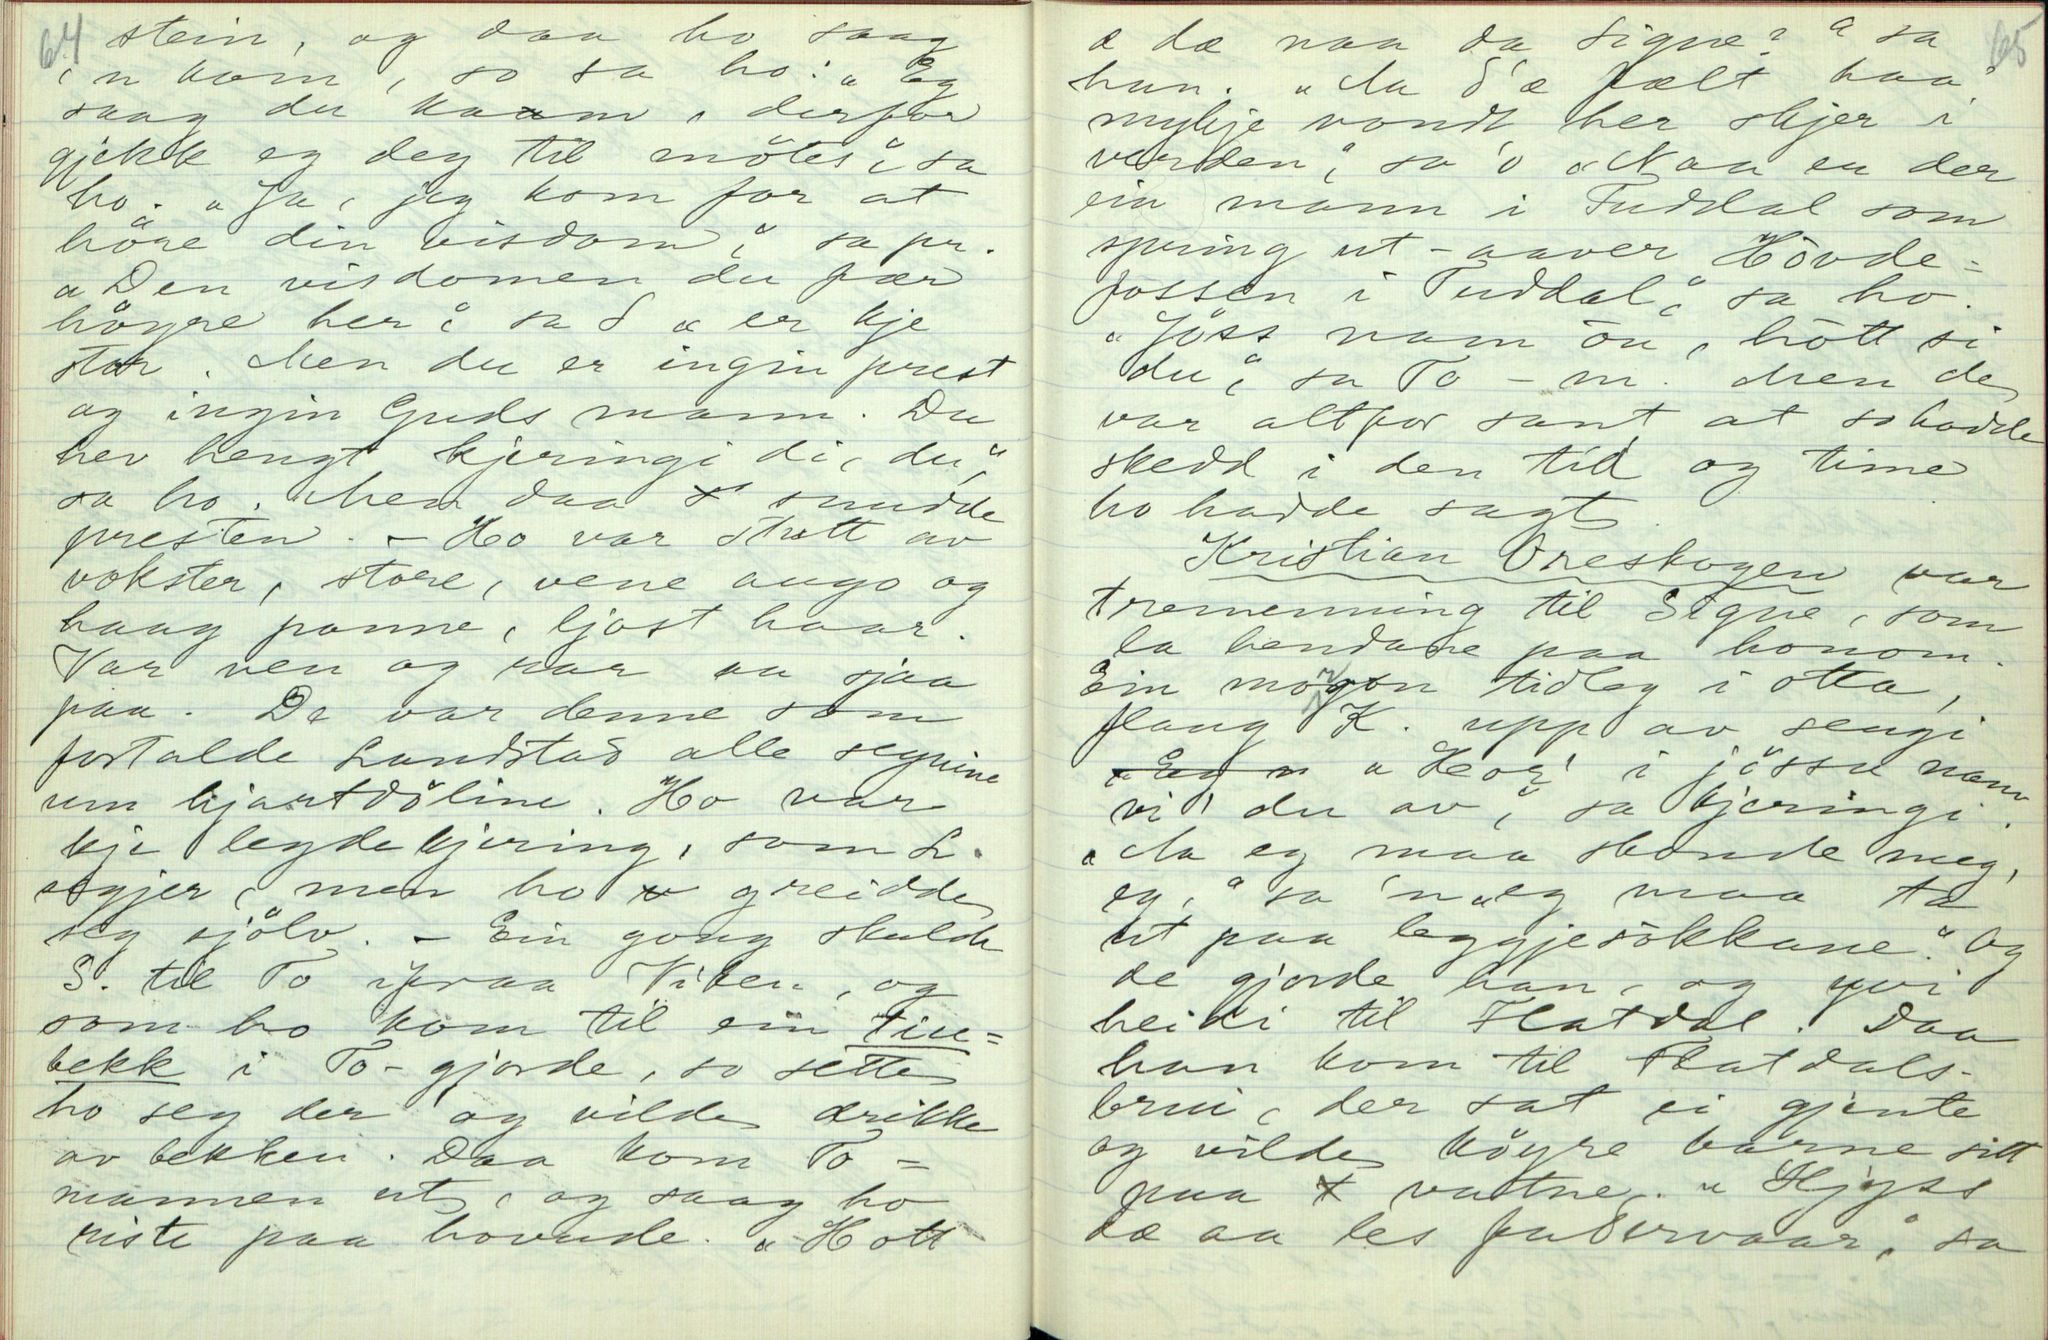 64
stein, og daa ho saag
'n kom, so sa ho: „Eg
saag du kaam, derfor
gjekk eg deg til mötes", sa
ho. „Ja, jeg kom for at
höre din visdom", sa pr.
„Den visdomen du fær
höyre her", sa S „er kje
stor. Men du er ingin prest
og ingin Guds mann. Du
hev hengt kjeringi di, du",
sa ho. Men daa snudde
presten. – Ho var stutt av
vokster, store, vene augo og
haag panne, ljost haar.
Var ven og rar aa sjaa
paa. De var denne som
fortalde Landstad alle segnine
um hjartdöline. Ho var
kje legdekjering, som L.
segjer, men ho greidde
seg sjölv. – Ein gong skulde
S. til To ifraa Viken, og
som ho kom til ein liten
bekk i To-gjorde, so sette
ho seg der og vilde drikke
av bekken. Daa kom To-
mannen ut, og saag ho
riste paa hovude. „Hott
65
æ dæ naa da Signe?" sa
han. „Aa d'æ fælt haa
mykje vondt her skjer i
verden", sa 'o „Naa er der
ein mann i Tuddal som
spring ut-aaver Hövde=
fossen i Tuddal", sa ho.
„Jöss nam ön, hött si
du", sa To-m. Men de
var altfor sant at so hadde
skedd i den tid og time
ho hadde sagt.
Kristian Oreskogen var
tremenning til Signe, som
la hendane paa honom.
Ein morgon tidleg i otta,
flaug K. upp av sengi
„Hor i jössu namn
vi' du av", sa kjeringi.
„Aa eg maa skonde meg,
eg," sa 'n „eg maa ta
ut paa leggjesokkane." Og
de gjorde han, og yvi
heiki til Flatdal. Daa
han kom til Flatdals-
brui, der sat ei gjente
og vilde köyre barne sitt
paa vattne. „Hjyss
dæ aa les fadervaar", sa